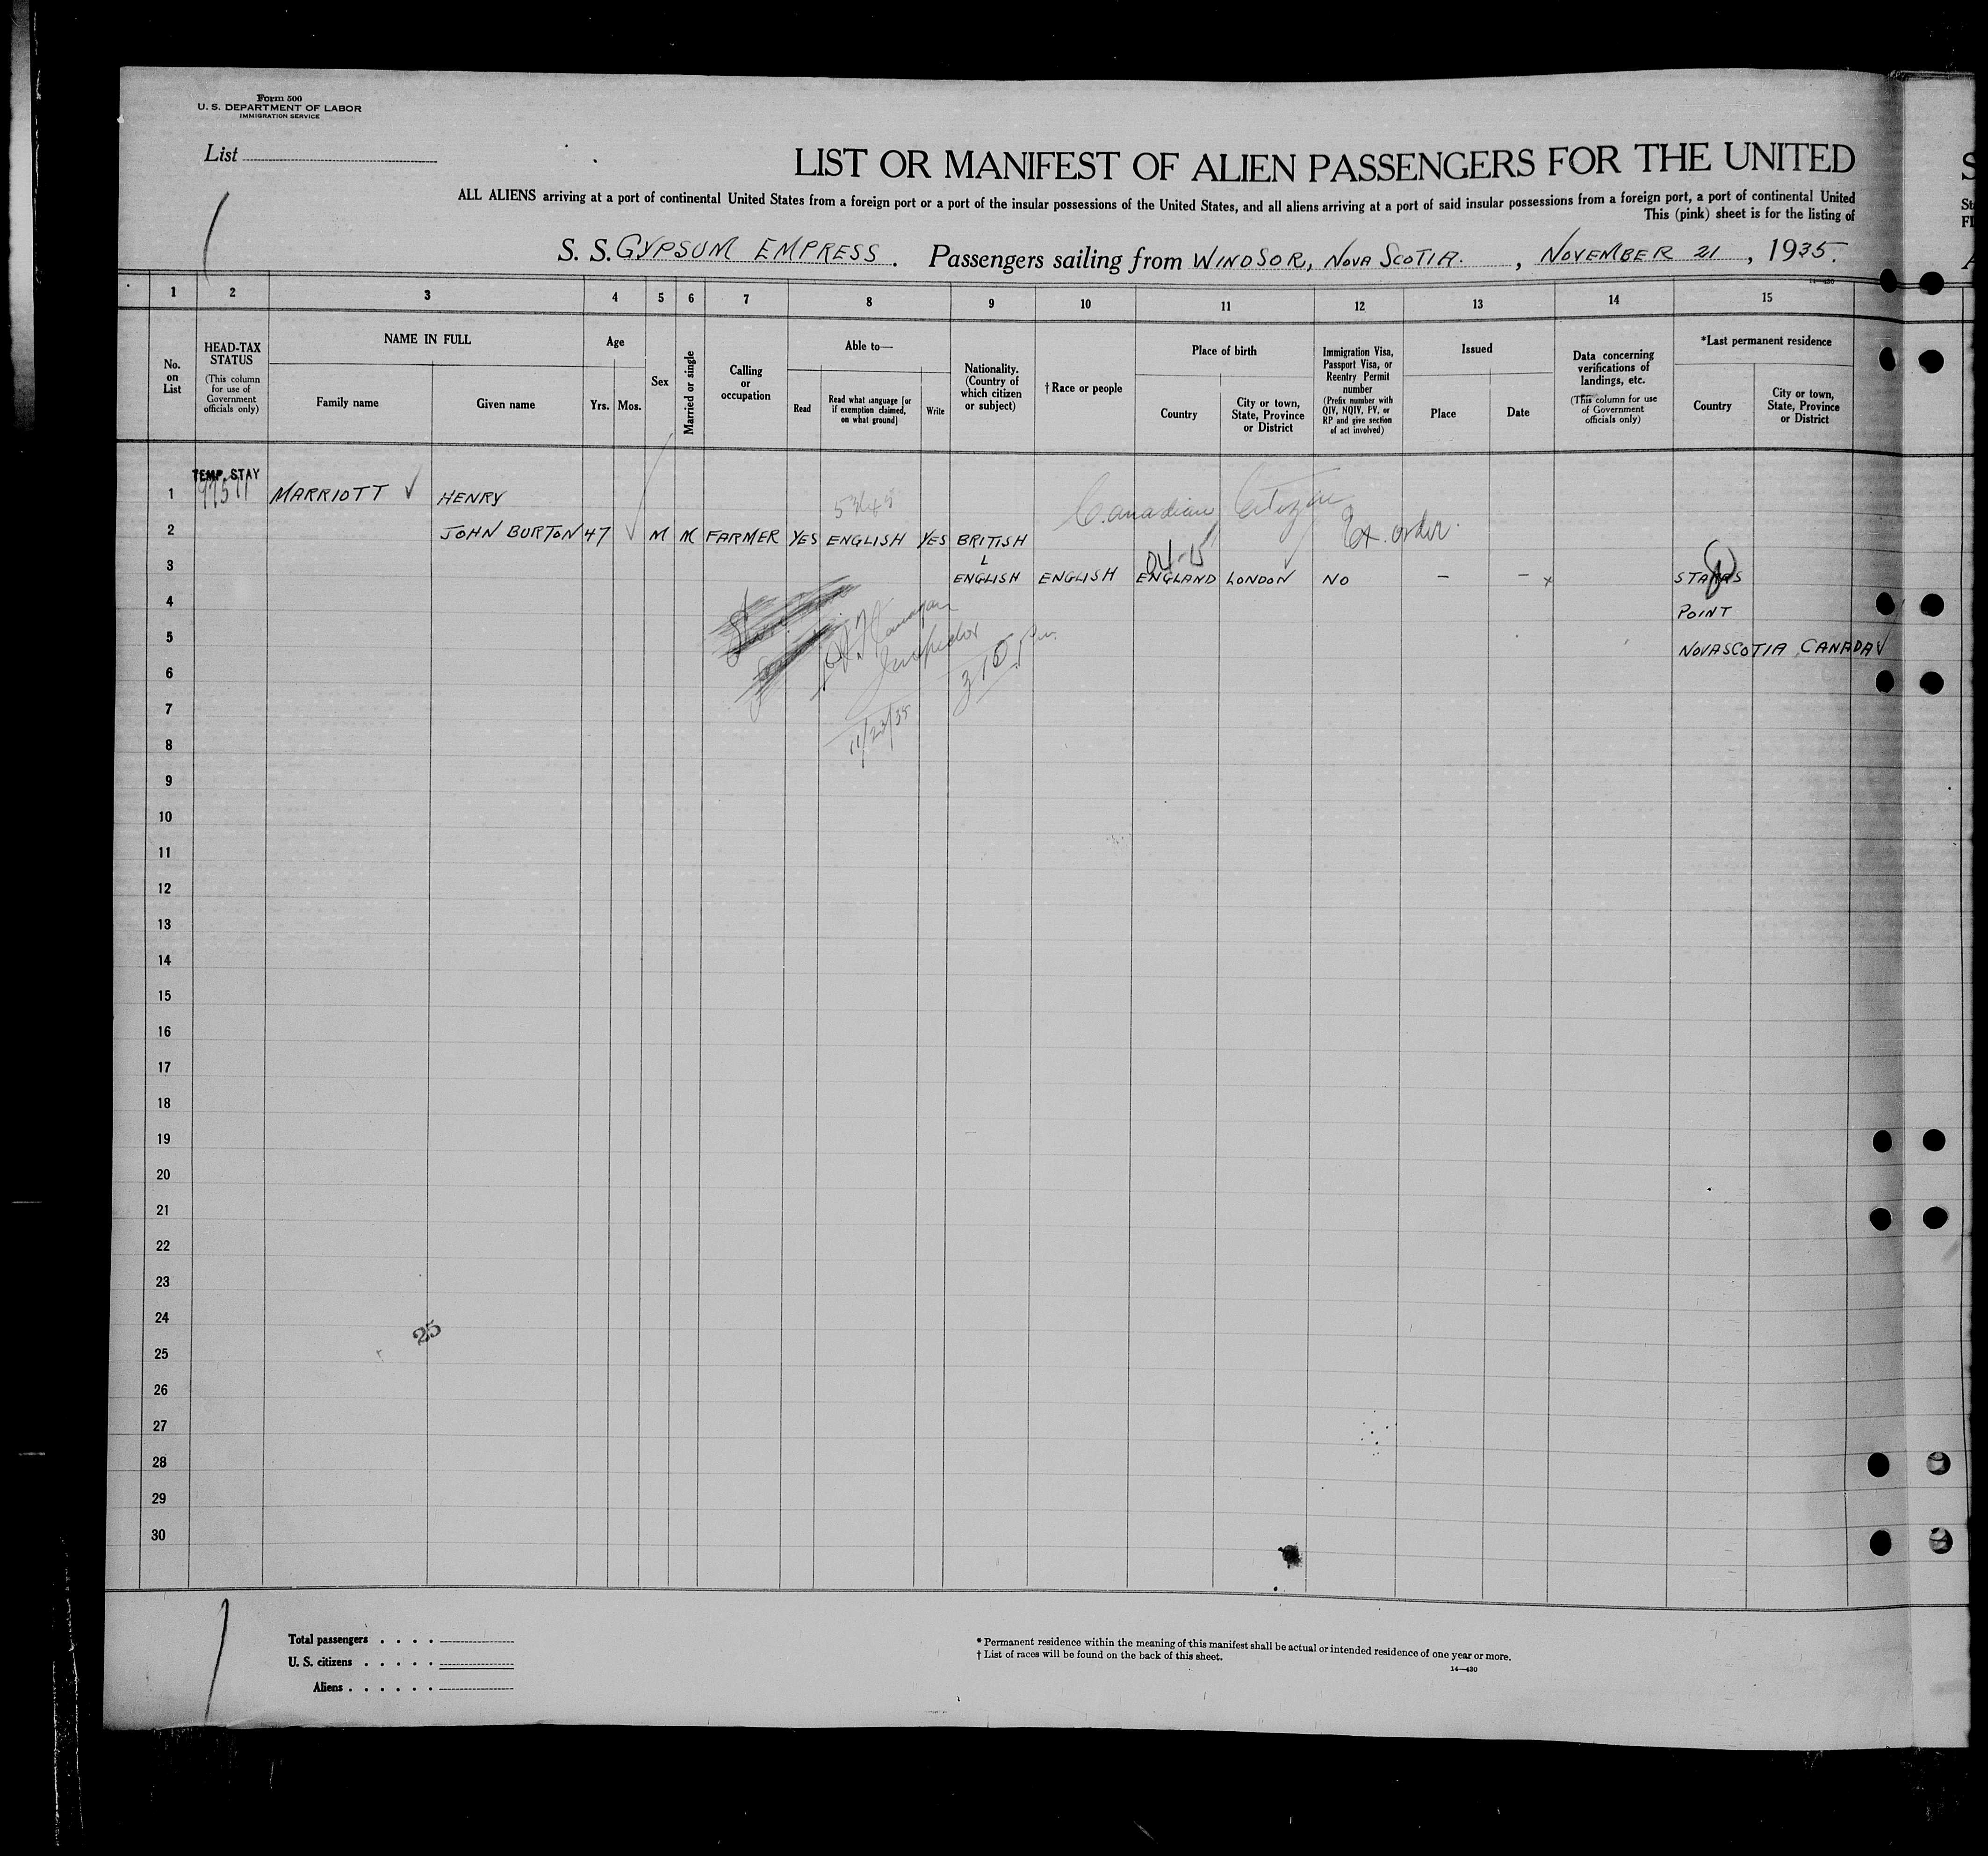 Form 500
U. S. DEPARTMENT OF LABOR
IMMIGRATION SERVICE
List
LIST OR MANIFEST OF ALIEN PASSENGERS FOR THE UNITED
ALL ALIENS arriving at a port of continental United States from a foreign port or a port of the insular possessions of the United States, and all aliens arriving at a port of said insular possessions from a foreign port, a port of continental United
This (pink) sheet is for the listing of
S. S. GYPSUM EMPRESS. Passengers sailing from WINDSOR, NOVA SCOTIA., NOVEMBER 21, 1935.
14—430
1 2 3 4 5 6 7 8 9 10 11 12 13 14 15
No. on List
HEAD-TAX STATUS
(This column for use of Government officials only)
NAME IN FULL
Family name
Given name
Age
Yrs. Mos.
Sex
Married or single
Calling or occupation
Able to—
Read
Read what language [or if exemption claimed, on what ground]
Write
Nationality. (Country of which citizen or subject)
†Race or people
Place of birth
Country
City or town, State, Province or District
Immigration Visa, Passport Visa, or Reentry Permit number
(Prefix number with QIV, NQIV, PV, or RP and give section of act involved)
Issued
Place
Date
Data concerning verifications of landings, etc.
(This column for use of Government officials only)
*Last permanent residence
Country
City or town, State, Province or District
TEMP. STAY
1 MARRIOTT ✓ HENRY
Canadian Citizen
2 JOHN BURTON 47 M M FARMER YES ENGLISH YES BRITISH
Ex. order.
3 ENGLISH ENGLISH ENGLAND LONDON NO – – STARRS
4 POINT
5 NOVASCOTIA CANADA
Inspector
11/23/35
6
7
8
9
10
11
12
13
14
15
16
17
18
19
20
21
22
23
24
25
25
26
27
28
29
30
Total passengers . . . .
U. S. citizens . . . . .
Aliens . . . . . .
* Permanent residence within the meaning of this manifest shall be actual or intended residence of one year or more.
† List of races will be found on the back of this sheet.
14—430